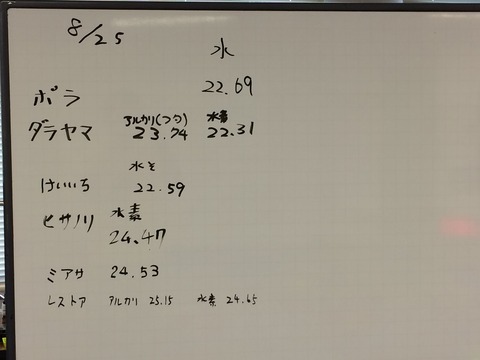 8/25
水
22.69
ポラ
アルカリ(つづ) 水素
ダラヤマ 23.74 22.31
水そ
けいいち 22.59
水素
ヒサノリ
24.47
ミアサ 24.53
レストア アルカリ 25.15 水素 24.65